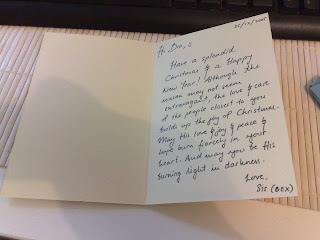 25/12/2005
Hi Bro,
Have a splendid
Christmas & a Happy
New Year! Although the
may not seem
extravagant, the love & care
of the people closest to you
builds up the joy of Christmas.
May His love & joy & peace &
hope burn fiercely in your
heart. And may you be His
burning light in darkness.
Love,
Sis (BEX)